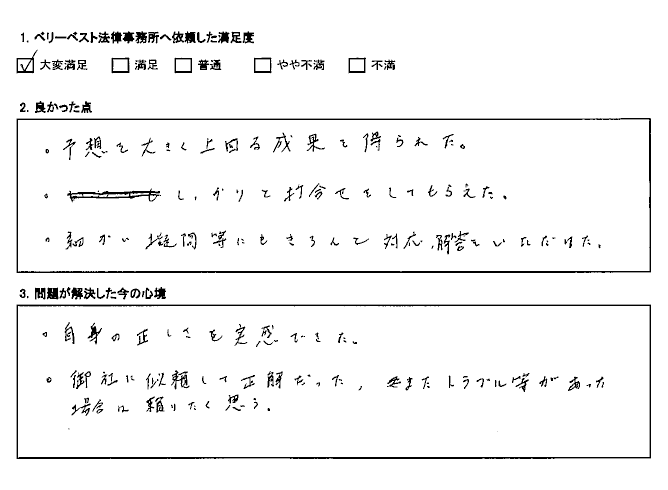 1. ベリーベスト法律事務所へ依頼した満足度
☑ 大変満足 □ 満足 □ 普通 □ やや不満 □ 不満
2. 良かった点
。予想を大きく上回る成果を得られた。
。しっかりと打合せをしてもらえた。
。細かい疑問等にもきちんと対応、解答をいただけた。
3. 問題が解決した今の心境
。自身の正しさを実感できた。
。御社に依頼して正解だった、またトラブル等があった
場合は頼りたく思う。